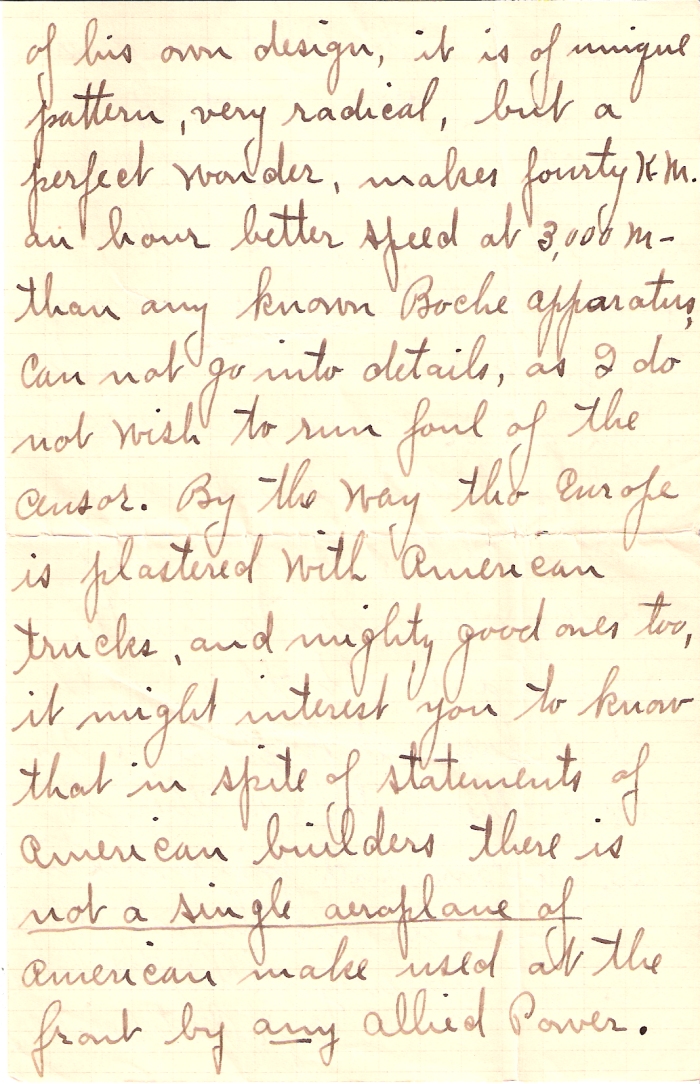 of his own design, it is of unique
pattern, very radical, but a
perfect wonder, makes fourty K.M.
an hour better speed at 3,000 m-
than any known Boche apparatus,
Can not go into details, as I do
not wish to run foul of the
censor. By the way tho Europe
is plastered with American
trucks, and mighty good ones too,
it might interest you to know
that in spite of statements of
American builders there is
not a single aeroplane of
American make used at the
front by any Allied Power.